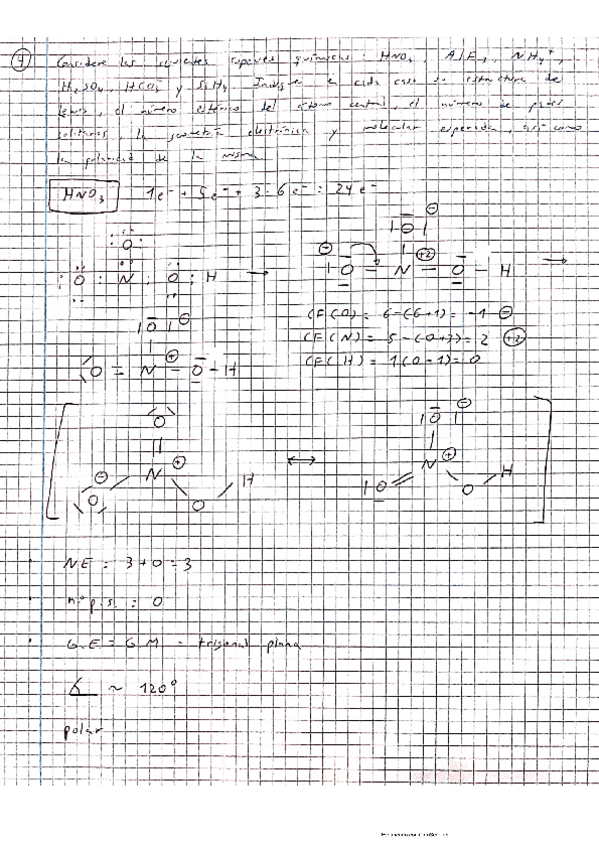 ④ Considere las siguientes especies químicas: HNO₃, AlF₃, NH₄⁺,
H₂SO₄, HCO₃⁻ y SiH₄. Indique en cada caso su estructura de
Lewis, el número estérico del átomo central, el número de pares
solitarios, la geometría electrónica y molecular esperada, así como
la polaridad de la misma.
HNO₃ 1e⁻ + 5e⁻ + 3·6e⁻ : 24e⁻
CF(O) = 6-(6+1) = -1 ⊖
CF(N) = 5-(0+3) = 2 (+2)
CF(H) = 1(0-1) = 0
NE : 3+0 = 3
nº p.s. : 0
G.E = G.M - trigonal plana
~ 120°
polar